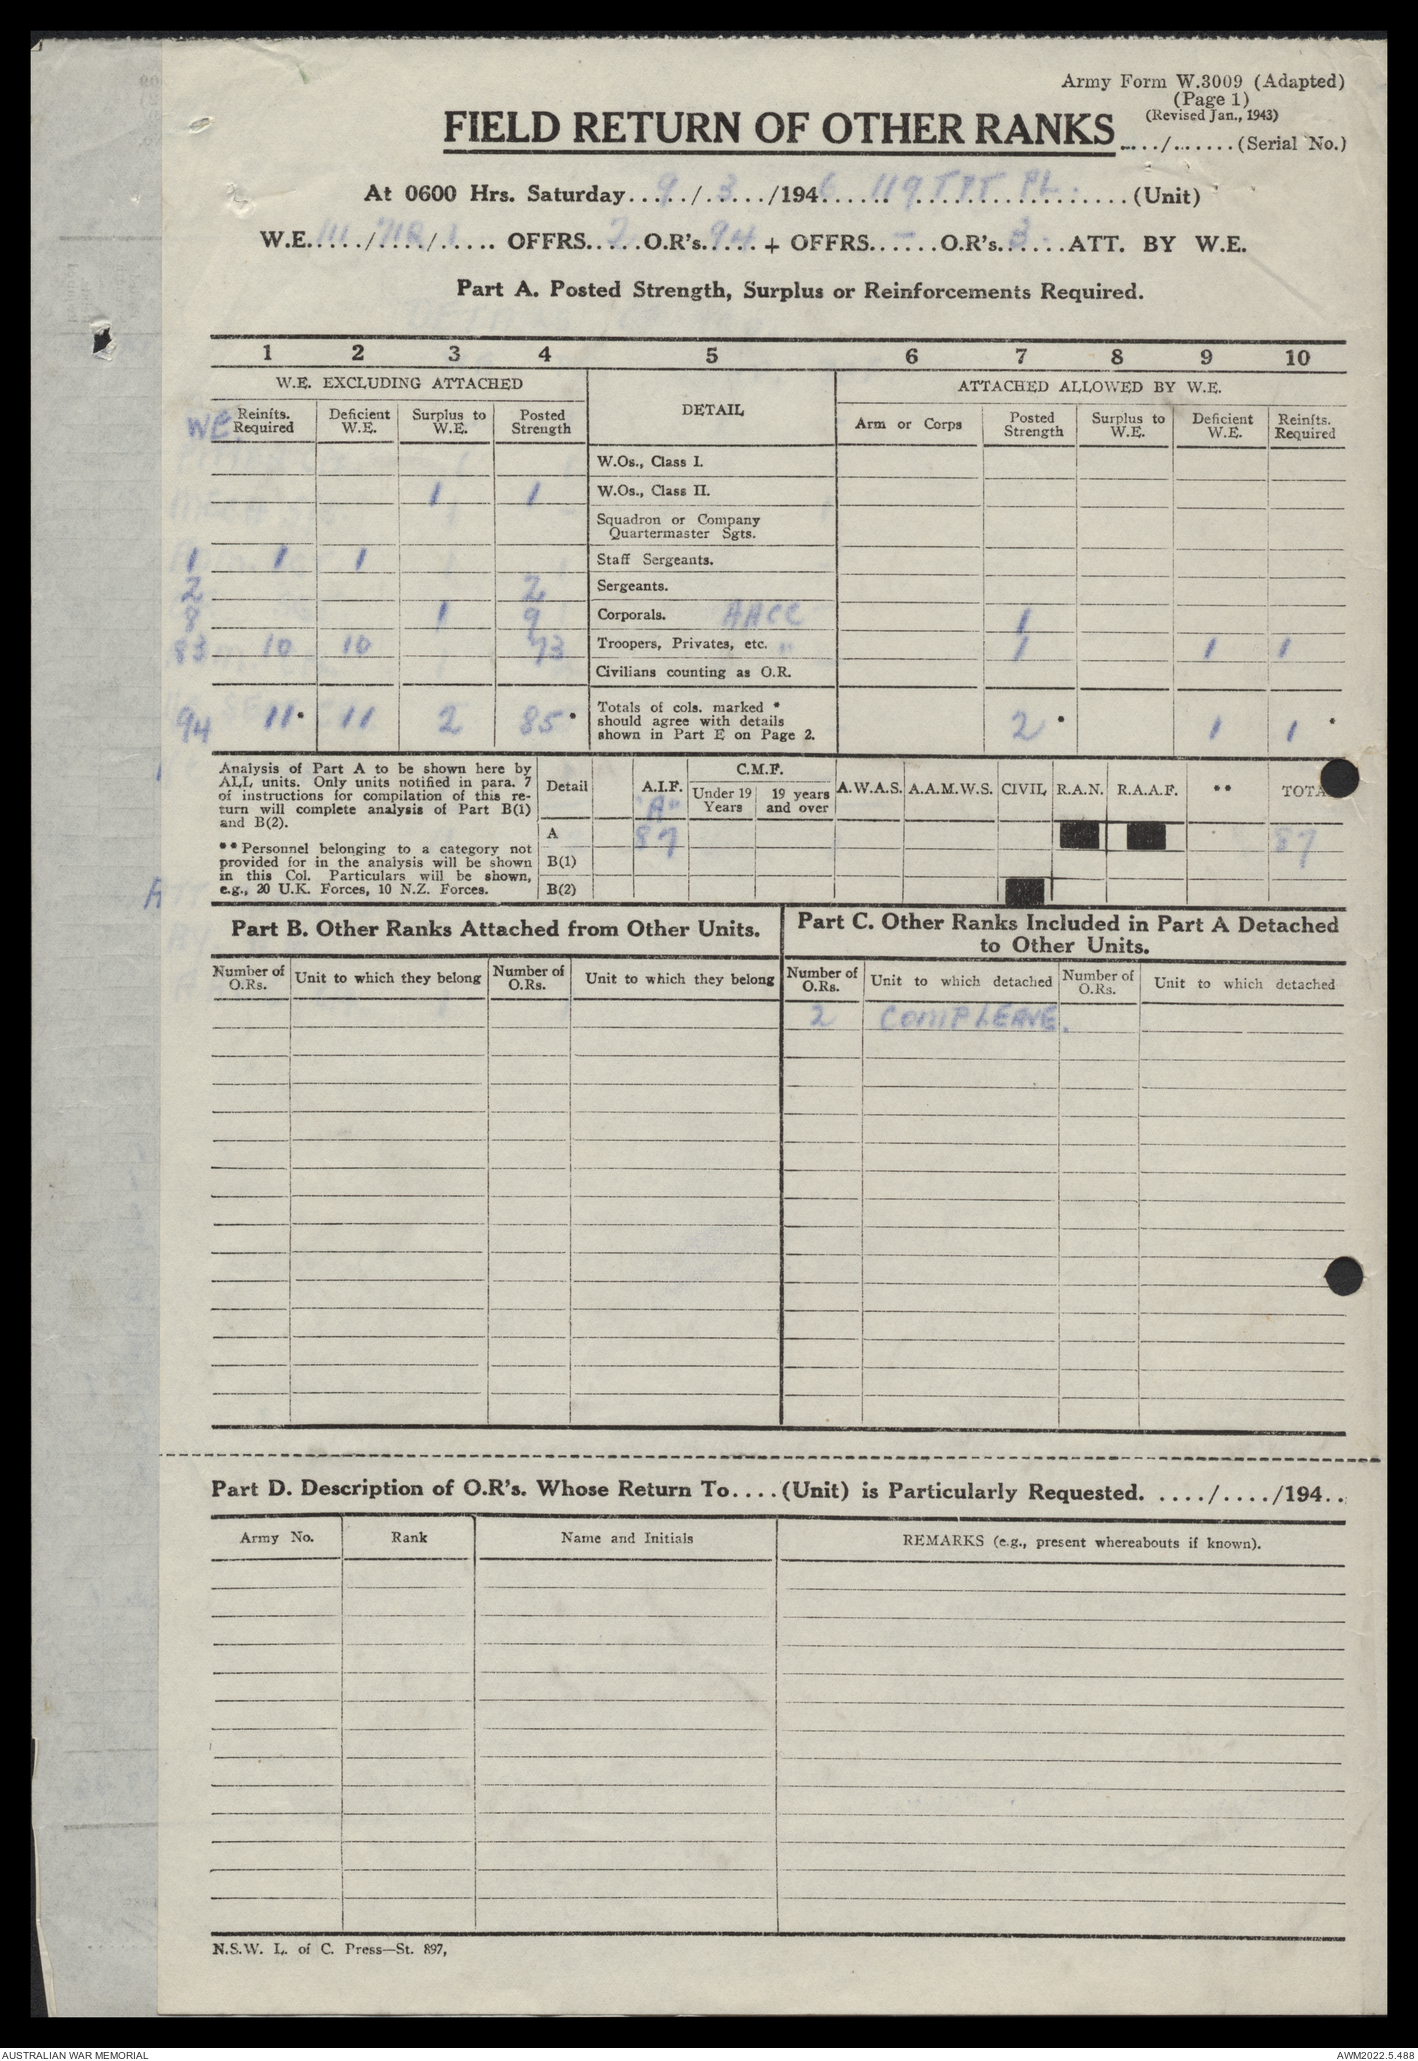 Army Form W.3009 (Adapted)
(Page 1)
(Revised Jan., 1943)
FIELD RETURN OF OTHER RANKS ...../...... (Serial No.)
At 0600 Hrs. Saturday...9../.3.../1946...... 119 TPT PL. ......(Unit)
W.E. 111/71R/1.... OFFRS..2..O.R's.94.. + OFFRS..–...O.R's..3....ATT. BY W.E.
Part A. Posted Strength, Surplus or Reinforcements Required.
1 2 3 4 5 6 7 8 9 10
W.E. EXCLUDING ATTACHED DETAIL ATTACHED ALLOWED BY W.E.
WE. Reinfts. Required Deficient W.E. Surplus to W.E. Posted Strength Arm or Corps Posted Strength Surplus to W.E. Deficient W.E. Reinfts. Required
W.Os., Class I.
1 1 W.Os., Class II.
Squadron or Company
Quartermaster Sgts.
1 1 1 Staff Sergeants.
2 2 Sergeants.
8 1 9 Corporals. AACC 1
83 10 10 73 Troopers, Privates, etc. " 1 1 1
Civilians counting as O.R.
94 11* 11 2 85* Totals of cols. marked * should agree with details shown in Part E on Page 2. 2* 1 1 *
Analysis of Part A to be shown here by
ALL units. Only units notified in para. 7
of instructions for compilation of this re-
turn will complete analysis of Part B(1)
and B(2).
** Personnel belonging to a category not
provided for in the analysis will be shown
in this Col. Particulars will be shown,
e.g., 20 U.K. Forces, 10 N.Z. Forces.
Detail A.I.F. C.M.F. Under 19 Years 19 years and over A.W.A.S. A.A.M.W.S. CIVIL R.A.N. R.A.A.F. ** TOTA
"A"
A 87 87
B(1)
B(2)
Part B. Other Ranks Attached from Other Units.
Part C. Other Ranks Included in Part A Detached
to Other Units.
Number of O.Rs. Unit to which they belong Number of O.Rs. Unit to which they belong Number of O.Rs. Unit to which detached Number of O.Rs. Unit to which detached
2 COMP LEAVE.
Part D. Description of O.R's. Whose Return To....(Unit) is Particularly Requested. ..../..../194..
Army No. Rank Name and Initials REMARKS (e.g., present whereabouts if known).
N.S.W. L. of C. Press—St. 897,
AUSTRALIAN WAR MEMORIAL AWM2022.5.488